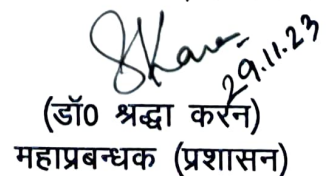 SKaran
29.11.23
(डॉ0 श्रद्धा करन)
महाप्रबन्धक (प्रशासन)